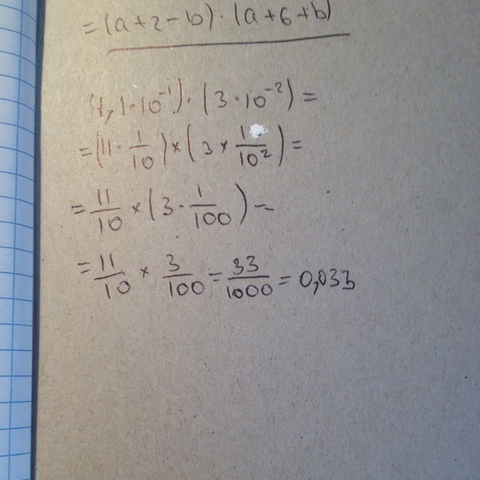 =(a+2-b)·(a+6+b)
(1,1·10⁻¹)·(3·10⁻²)=
=(11·1/10)×(3×1/10²)=
=11/10×(3·1/100)=
=11/10×3/100=33/1000=0,033